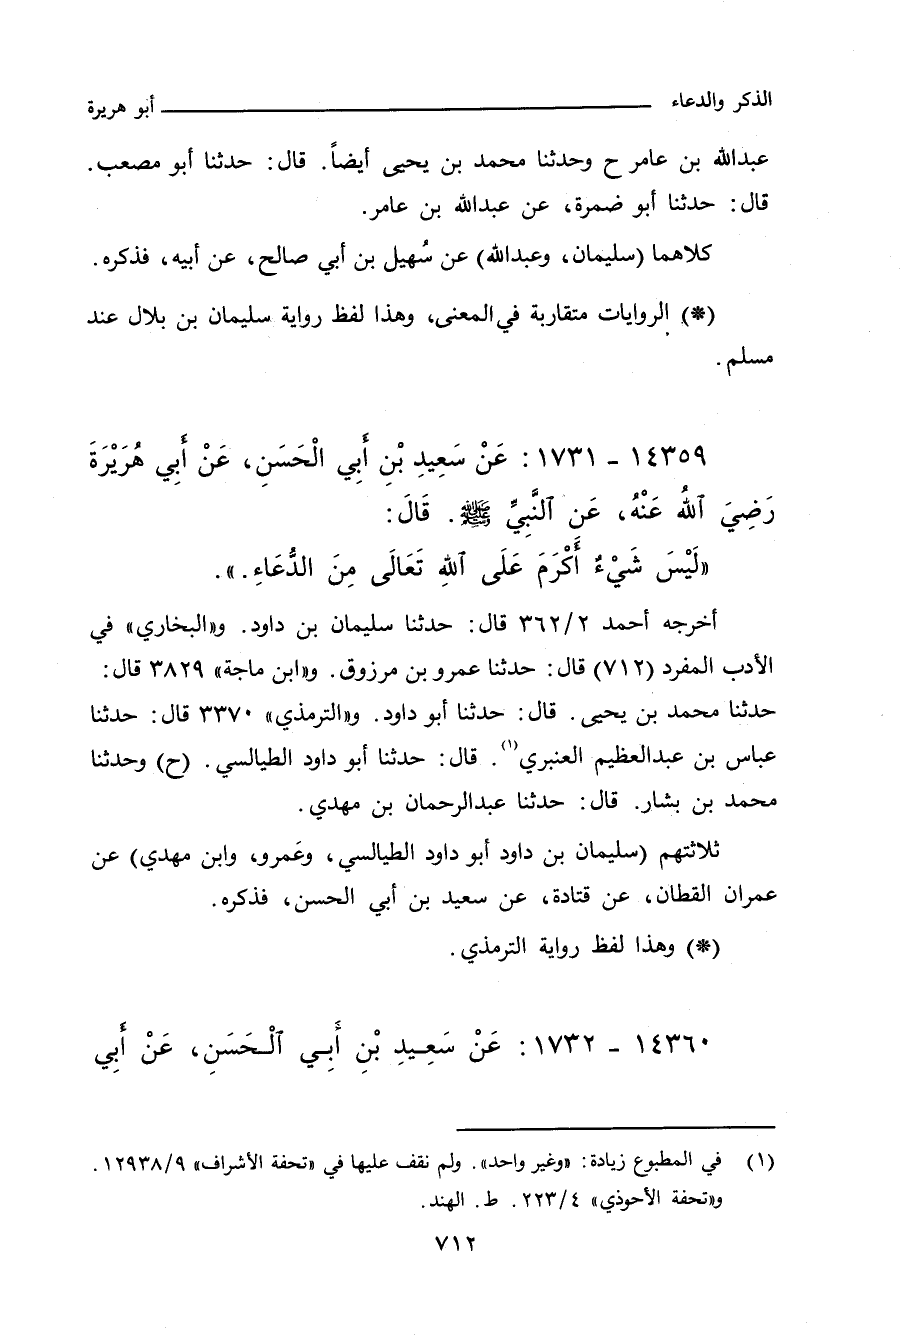 الذكر والدعاء ــــــــ أبو هريرة
عبدالله بن عامر ح وحدثنا محمد بن يحيى أيضاً. قال: حدثنا أبو مصعب.
قال: حدثنا أبو ضمرة، عن عبدالله بن عامر.
كلاهما (سليمان، وعبدالله) عن سُهيل بن أبي صالح، عن أبيه، فذكره.
(*) الروايات متقاربة في المعنى، وهذا لفظ رواية سليمان بن بلال عند
مسلم.
١٤٣٥٩ - ١٧٣١: عَنْ سَعِيدِ بْنِ أَبِي الْحَسَنِ، عَنْ أَبِي هُرَيْرَةَ
رَضِيَ ٱللهُ عَنْهُ، عَنِ ٱلنَّبِيِّ ﷺ. قَالَ:
«لَيْسَ شَيْءٌ أَكْرَمَ عَلَى ٱللهِ تَعَالَى مِنَ الدُّعَاءِ.».
أخرجه أحمد ٣٦٢/٢ قال: حدثنا سليمان بن داود. و«البخاري» في
الأدب المفرد (٧١٢) قال: حدثنا عمرو بن مرزوق. و«ابن ماجة» ٣٨٢٩ قال:
حدثنا محمد بن يحيى. قال: حدثنا أبو داود. و«الترمذي» ٣٣٧٠ قال: حدثنا
عباس بن عبدالعظيم العنبري(١). قال: حدثنا أبو داود الطيالسي. (ح) وحدثنا
محمد بن بشار. قال: حدثنا عبدالرحمان بن مهدي.
ثلاثتهم (سليمان بن داود أبو داود الطيالسي، وعَمرو، وابن مهدي) عن
عمران القطان، عن قتادة، عن سعيد بن أبي الحسن، فذكره.
(*) وهذا لفظ رواية الترمذي.
١٤٣٦٠ - ١٧٣٢: عَنْ سَعِيدِ بْنِ أَبِي ٱلْحَسَنِ، عَنْ أَبِي
(١) في المطبوع زيادة: «وغير واحد». ولم نقف عليها في «تحفة الأشراف» ١٢٩٣٨/٩.
و«تحفة الأحوذي» ٢٢٣/٤. ط. الهند.
٧١٢